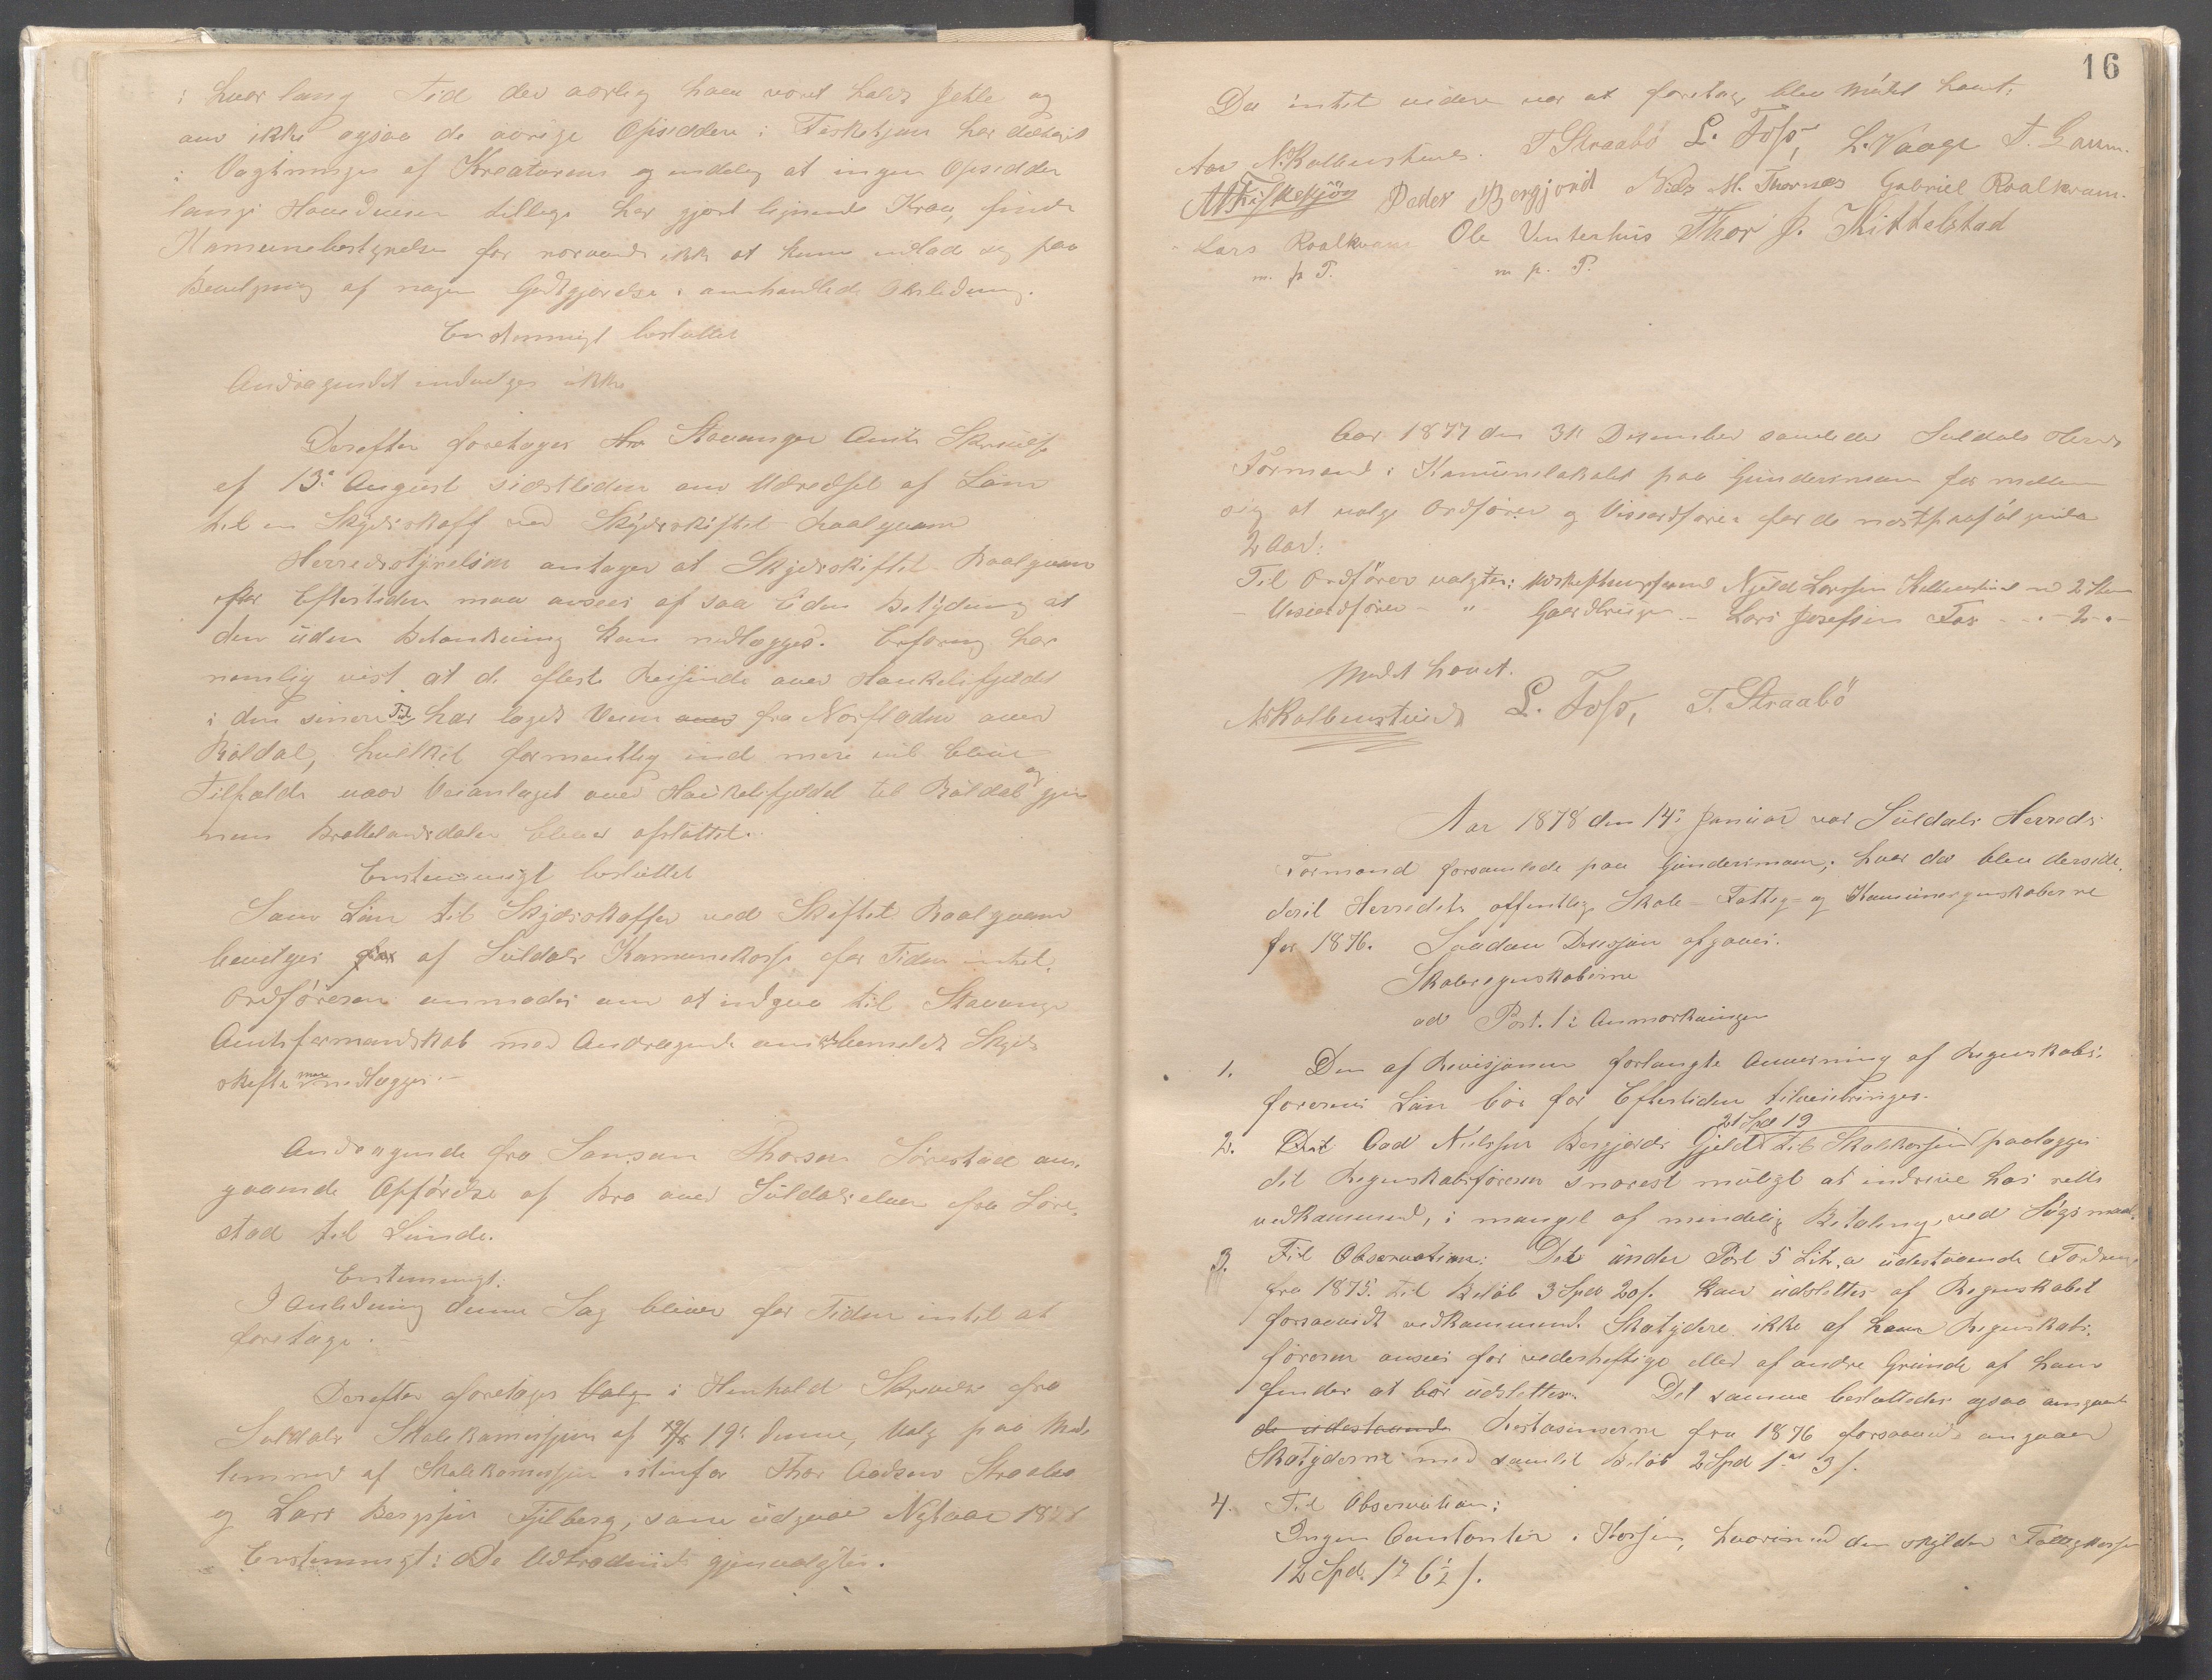 i hvor lang Tid der aarlig have været holdt Jette og
om ikke ogsaa de øvrige Opsiddere i Fiskekjøn har deltaget
i Vagtningen af Kreaturene og endelig at ingen Opsidder
langs Hovedveien tillige har gjort lignende Krav, finder
Kommunebestyrelsen for nærværende ikke at kunne indlade sig paa
Bevilgning af nogen Godtgjørelse i omhandlede Anledning.
Enstemmigt besluttet
Andragendet indvilges ikke
Derefter foretages Stavanger Amts Skrivelse
af 13de August sidstleden om Udredsel af Løn
til en Skydsskaff ved Skydsskiftet Roalqvam
Herredsstyrelsen antager at Skydsskiftet Roalqvam
for Eftertiden maa ansees af saa liden Betydning at
den uden Betænkning kan nedlægges. Erfaring har
nemlig vist at de fleste Reisende over Haukelifjeldet
i den senere Tid har taget Veien over fra Næsfladen over
Røldal, hvilket formentlig end mere vil blive
Tilfælde naar Veianlæget over Haukelifjeldet til Røldal og gjen
nem Brattelandsdalen bliver afsluttet.
Enstemmigt besluttet
Som Løn til Skydsskaffer ved Skiftet Roalqvam
bevilges for af Suldals Kommunekasse for Tiden intet.
Ordføreren anmodes om at indgaa til Stavanger
Amtsformandskab med Andragende om at bemeldte Skyds
skifte maa nedlægges.
Andragende fra Samson Thorsen Sørestad an-
gaaende Opførelse af Bro over Suldalselven fra Søre-
stad til Lunde.
Enstemmigt:
I Anledning denne Sag bliver for Tiden intet at
foretage.
Derefter foretages Valg i Henhold Skrivelse fra
Suldals Skolekommissjon af 19de denne, Valg paa Med-
lemmer af Skolekommissjon istenfor Thor Aadsen Straabø
og Lars Bergesen Fjelberg, som udgaar Nytaar 1878
Enstemmigt: De Udtrædende gjenvalgtes.
16
Da intet videre var at foretage blev Mødet hævet.
Aav N. Kolbenstvedt. T Straabø L. Foss, L. Vaage T. Gaum.
Fiskekjøn Peder Bergjord Nils M. Thornes Gabriel Roalkvam.
Lars Roalkvam Ole Vinterhus Thor J. Kittelstad
m. p. P. m p. P.
Aar 1877 den 31 Desember samledes Suldals Herreds
Formænd i Kommunelokalet paa Gunderimoen for mellem
sig at vælge Ordfører og Viseordfører for de næstpaafølgende
2 Aar:
Til Ordfører valgtes: Njeld Larssen Kolbenstvedt m 2 Stem
- Viseordfører - " Gaardbruger - Lars Josefsen Fos - - 2 -
Mødet hævet.
N Kolbenstvedt L. Foss, T. Straabø
Aar 1878 den 14de Januar var Suldals Herreds
Formænd forsamlede paa Gunderimoen; hvor der blev deside
deret Herredets offentlige Skole- Fattig- og Kommuneregnskaberne
for 1876. Saadan Desisjon afgaves.
Skoleregnskaberne
ad Post. 1: Anmærkningen
1. Den af Revisjonen forlangte Anvisning af Regnskabs-
førerens Løn bør for Eftertiden tilveiebringes.
21 Spd 19
2. Det Aad Nielssen Bergjords Gjeld til Skolekassen paalægges
det Regnskabsføreren snarest muligt at inddrive hos rette
vedkommende, i mangel af mindelig Betaling, ved Søgsmaal.
3. Til Observation: Det under Post 5 Litr. a udestaaende Fordring
fra 1875 til Beløb 3 Spd 20 s. kan udslettes af Regnskabet
forsaavidt vedkommende Skatydere ikke af ham Regnskabs-
føreren ansees for vederheftige eller af andre Grunde af ham
findes at bør udslettes. Det samme besluttedes ogsaa angaaende
de udestaaende Restanserne fra 1876 forsaavidt angaaer
Skatyderne med samlet Beløb 2 Spd 1 ort 3 s.
4. Til Observation:
Ingen Contanter i Kassen, hvorimod den skylder Fattigkassen
12 Spd. 1 ort 6½ s.